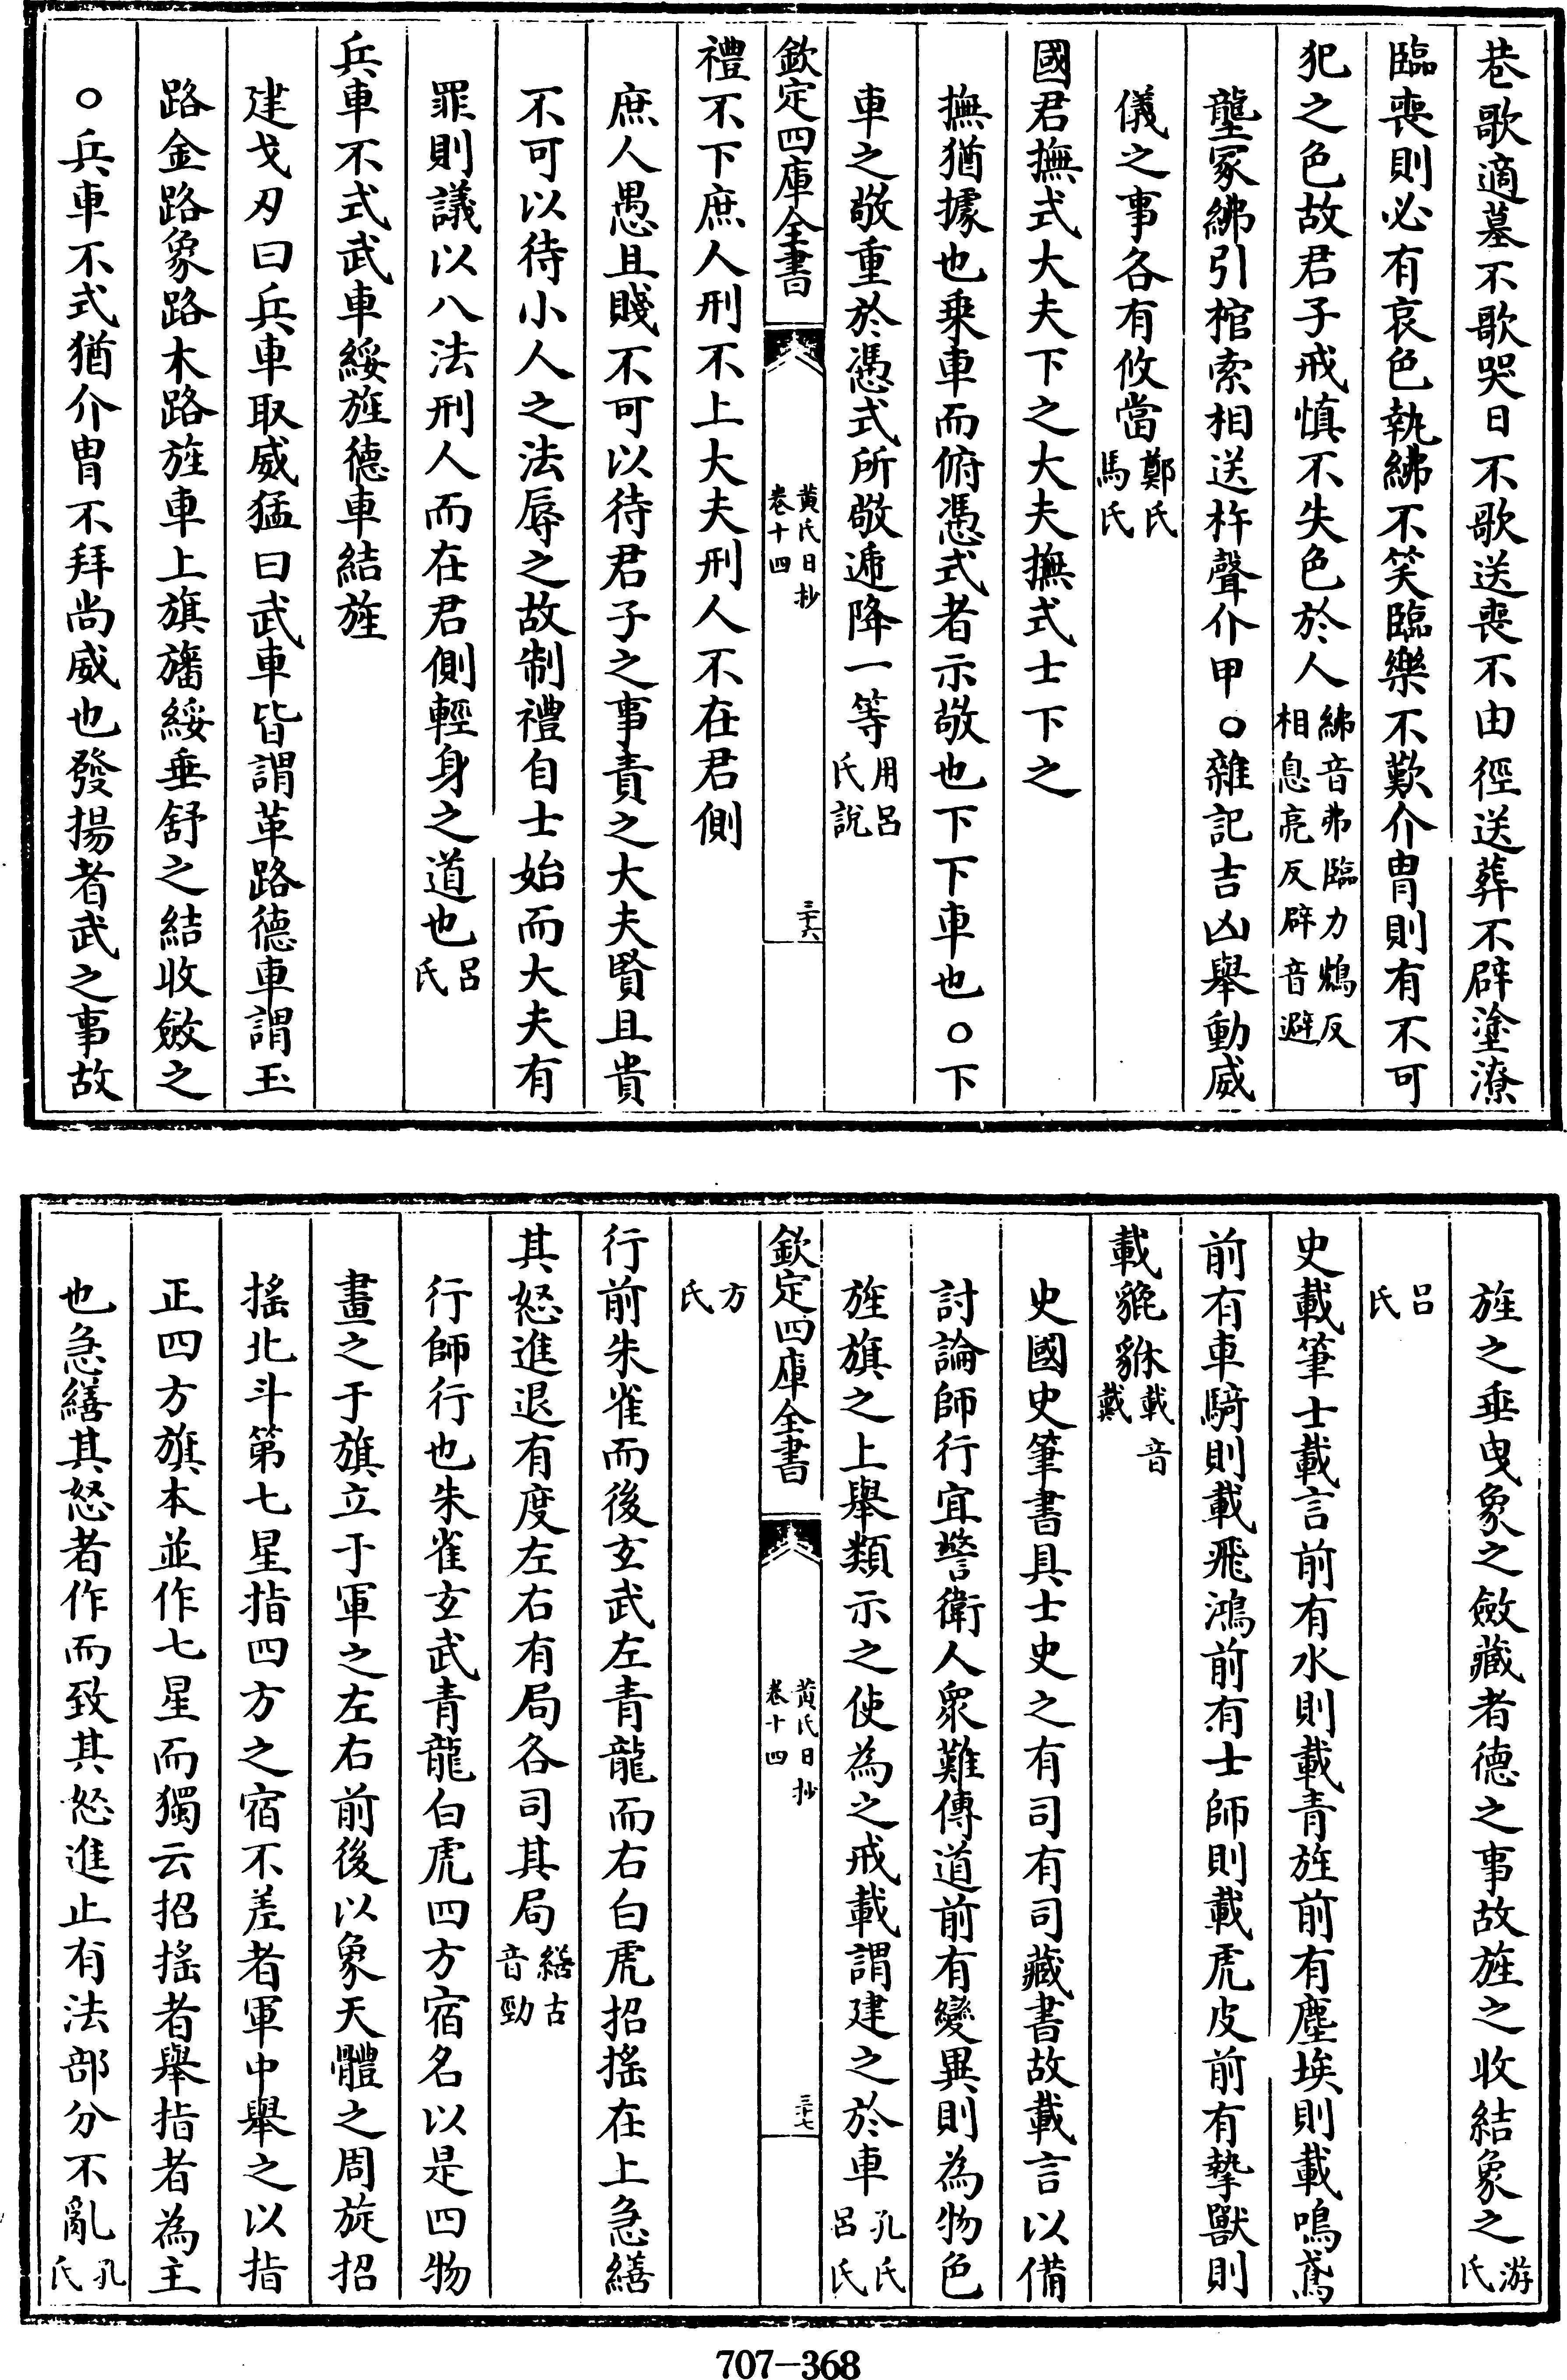 巷歌適墓不歌哭日不歌送喪不由徑送葬不辟塗潦
臨喪則必有哀色執紼不笑臨樂不歎介胄則有不可
犯之色故君子戒慎不失色於人紼音弗臨力鴆反相息亮反辟音避
壟冢紼引棺索相送杵聲介甲○雜記吉凶舉動威
儀之事各有攸當鄭氏馬氏
國君撫式大夫下之大夫撫式士下之
撫猶據也乗車而俯憑式者示敬也下下車也○下
車之敬重於憑式所敬遞降一等用呂氏說
欽定四庫全書 黃氏日抄卷十四 三十六
禮不下庶人刑不上大夫刑人不在君側
庶人愚且賤不可以待君子之事責之大夫賢且貴
不可以待小人之法辱之故制禮自士始而大夫有
罪則議以八法刑人而在君側輕身之道也呂氏
兵車不式武車綏旌德車結旌
建戈刃曰兵車取威猛曰武車皆謂革路德車謂玉
路金路象路木路旌車上旗旛綏垂舒之結收斂之
○兵車不式猶介胄不拜尚威也發揚者武之事故
旌之垂曳象之斂藏者德之事故旌之收結象之游氏
呂氏
史載筆士載言前有水則載青旌前有塵埃則載鳴鳶
前有車騎則載飛鴻前有士師則載虎皮前有摯獸則
載貔貅載音戴
史國史筆書具士史之有司有司藏書故載言以備
討論師行宜警衛人衆難傳道前有變異則為物色
旌旗之上舉類示之使為之戒載謂建之於車孔氏呂氏
欽定四庫全書 黃氏日抄卷十四 三十七
方氏
行前朱雀而後玄武左青龍而右白虎招搖在上急繕
其怒進退有度左右有局各司其局繕古音勁
行師行也朱雀玄武青龍白虎四方宿名以是四物
畫之于旗立于軍之左右前後以象天體之周旋招
搖北斗第七星指四方之宿不差者軍中舉之以指
正四方旗本並作七星而獨云招搖者舉指者為主
也急繕其怒者作而致其怒進止有法部分不亂孔氏
707-368